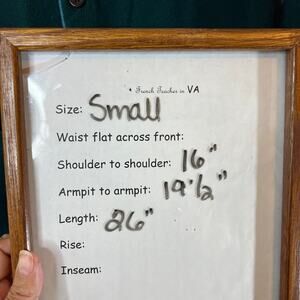 • French Teacher in VA
Size: Small
Waist flat across front:
Shoulder to shoulder: 16"
Armpit to armpit: 19 1/2"
Length: 26"
Rise:
Inseam: